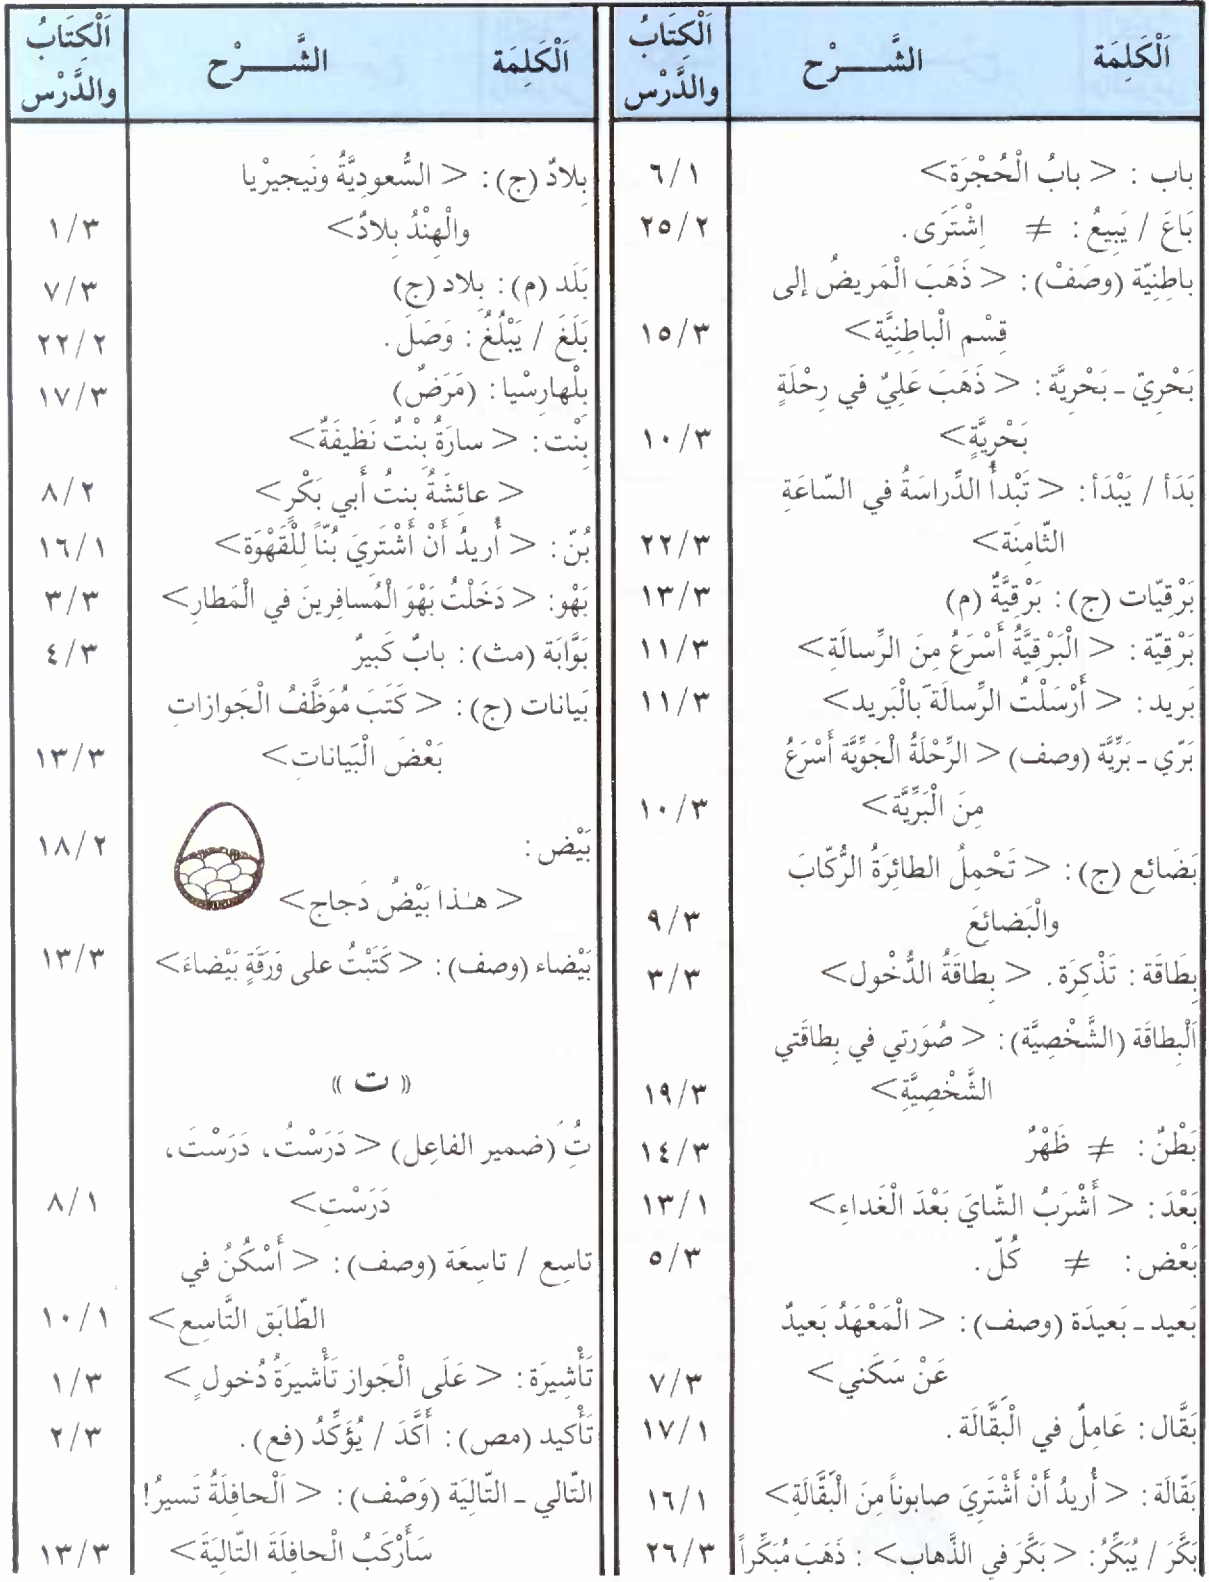 اَلْكَلِمَة الشَّـــرْح اَلْكِتَابُ والدَّرْس
باب : < بابُ الْحُجْرَة> ٦/١
بَاعَ / يَبِيعُ : ≠ اِشْتَرَى. ٢٥/٢
باطِنِيّة (وصَفْ) : < ذَهَبَ الْمَريضُ إلى
قِسْم الْباطِنِيَّة> ١٥/٣
بَحْرِيّ ـ بَحْرِيَّة : < ذَهَبَ عَلِيٌ في رِحْلَةٍ
بَحْرِيَّةٍ> ١٠/٣
بَدَأ / يَبْدَأ : < تَبْدأُ الدِّراسَةُ في السّاعَةِ
الثّامِنَة> ٢٢/٣
بَرْقِيّات (ج) : بَرْقِيَّةٌ (م) ١٣/٣
بَرْقِيّة : < الْبَرْقِيَّةُ أَسْرَعُ مِنَ الرِّسالَةِ> ١١/٣
بَريد : < أَرْسَلْتُ الرِّسالَةَ بالْبَريد> ١١/٣
بَرّي ـ بَرِّيَّة (وصف) < الرِّحْلَةُ الْجَوِّيَّة أَسْرَعُ
مِنَ الْبَرِّيَّة> ١٠/٣
بَضَائِع (ج) : < تَحْمِلُ الطائِرَةُ الرُّكّابَ
والْبَضائعَ ٩/٣
بِطَاقَة : تَذْكِرَة . < بِطاقَةُ الدُّخْول> ٣/٣
اَلْبِطاقَة (الشَّخْصِيَّة) : < صُوَرتي في بِطاقَتي
الشَّخْصِيَّةِ> ١٩/٣
بَطْنٌ : ≠ ظَهْرٌ ١٤/٣
بَعْدَ : < أَشْرَبُ الشّايَ بَعْدَ الْغَداءِ> ١٣/١
بَعْض : ≠ كُلّ . ٥/٣
بَعيد ـ بَعيدَة (وصف) : < الْمَعْهَدُ بَعيدٌ
عَنْ سَكَني> ٧/٣
بَقَّال : عَامِلٌ في الْبَقَّالَة . ١٧/١
بَقّالَة : < أُريدُ أَنْ أَشْتَرِيَ صابوناً مِنَ الْبَقَّالَةِ> ١٦/١
بَكَّرَ / يُبَكِّرُ: < بَكَّرَ في الذَّهاب> : ذَهَبَ مُبَكِّراً ٢٦/٣
اَلْكَلِمَة الشَّـــرْح اَلْكِتَابُ والدَّرْس
بِلادٌ (ج) : < السُّعودِيَّةُ ونَيجيْريا
والْهِنْدُ بِلادٌ> ١/٣
بَلَد (م) : بِلاد (ج) ٧/٣
بَلَغَ / يَبْلُغُ : وَصَلَ . ٢٢/٢
بِلْهارِسْيا : (مَرَضٌ) ١٧/٣
بِنْت : < سارَةُ بِنْتٌ نَظيفَةٌ>
< عائِشَةُ بنتُ أَبي بَكْرٍ> ٨/٢
بُنّ : < أُريدُ أَنْ أَشْتَرِيَ بُنّاً لِلْقَهْوَة> ١٦/١
بَهْو: < دَخَلْتُ بَهْوَ الْمُسافِرينَ في الْمَطارِ> ٣/٣
بَوَّابَة (مث) : بابٌ كَبيرٌ ٤/٣
بَيانات (ج) : < كَتَبَ مُوَظَّفُ الْجَوازاتِ
بَعْضَ الْبَياناتِ> ١٣/٣
بَيْض : ١٨/٢
< هـٰذا بَيْضُ دَجاج>
بَيْضاء (وصف) : < كَتَبْتُ على وَرَقَةٍ بَيْضاءَ> ١٣/٣
« ت »
تُِ (ضمير الفاعِل) < دَرَسْتُ ، دَرَسْتَ ،
دَرَسْتِ> ٨/١
تاسِع / تاسِعَة (وصف) : < أَسْكُنُ في
الطّابَق التَّاسِع> ١٠/١
تَأْشِيرَة : < عَلَى الْجَواز تَأْشيرَةُ دُخول> ١/٣
تَأْكيد (مص) : أَكَّدَ / يُؤَكِّدُ (فع) . ٢/٣
التّالي ـ التّالِيَة (وَصْف) : < اَلْحافِلَةُ تَسيرُ!
سَأَرْكَبُ الْحافِلَةَ التّالِيَةَ> ١٣/٣